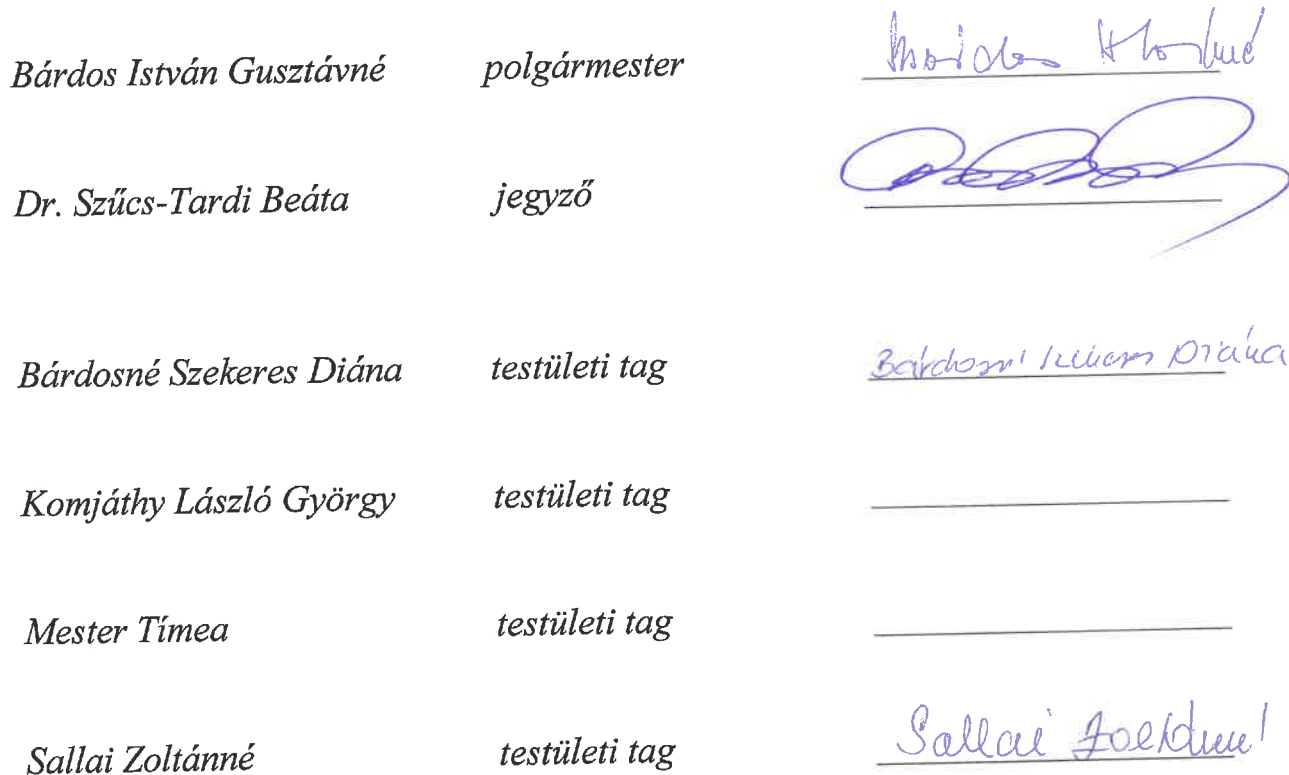 Bárdos István Gusztávné polgármester
Dr. Szűcs-Tardi Beáta jegyző
Bárdosné Szekeres Diána testületi tag Diána
Komjáthy László György testületi tag
Mester Tímea testületi tag
Sallai Zoltánné testületi tag Sallai